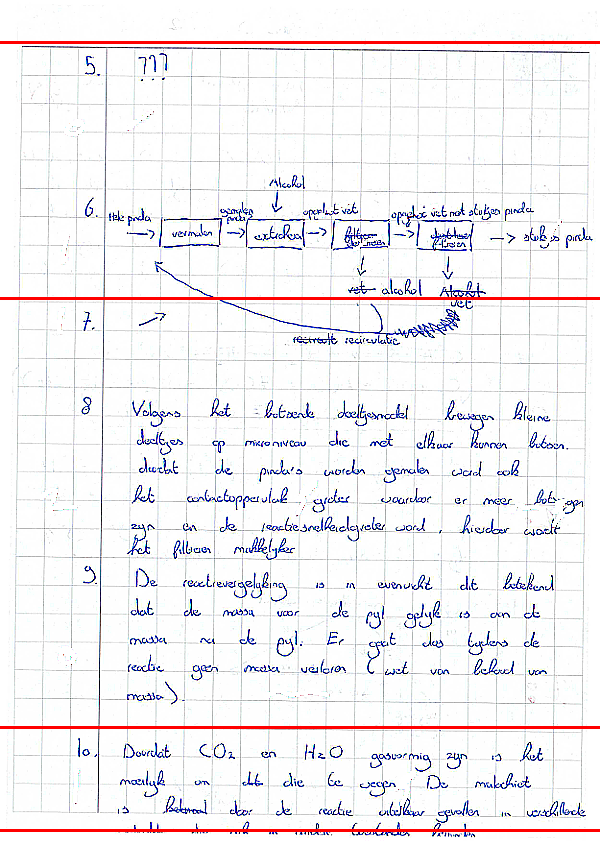 5. ???
Alcohol
6. Hele pinda gemalen pinda opgelost vet opgelost vet met stukjes pinda
vermalen extraheren stukjes pinda
vet alcohol Alcohol
vet
7.
recirculatie
8 Volgens het botsende deeltjesmodel bewegen kleine
deeltjes op microniveau die met elkaar kunnen botsen.
doordat de pinda's worden gemalen word ook
het contactoppervlak groter waardoor er meer botsingen
zijn en de reactiesnelheid groter word, hierdoor wordt
het filtreren makkelijker
9. De reactievergelijking is in evenwicht dit betekend
dat de massa voor de pijl gelijk is aan de
massa na de pijl. Er gaat dus tijdens de
reactie geen massa verloren (wet van behoud van
massa).
10. Doordat CO2 en H2O gasvormig zijn is het
moeilijk om die te wegen. De
is door de reactie uitelkaar gevallen in verschillende